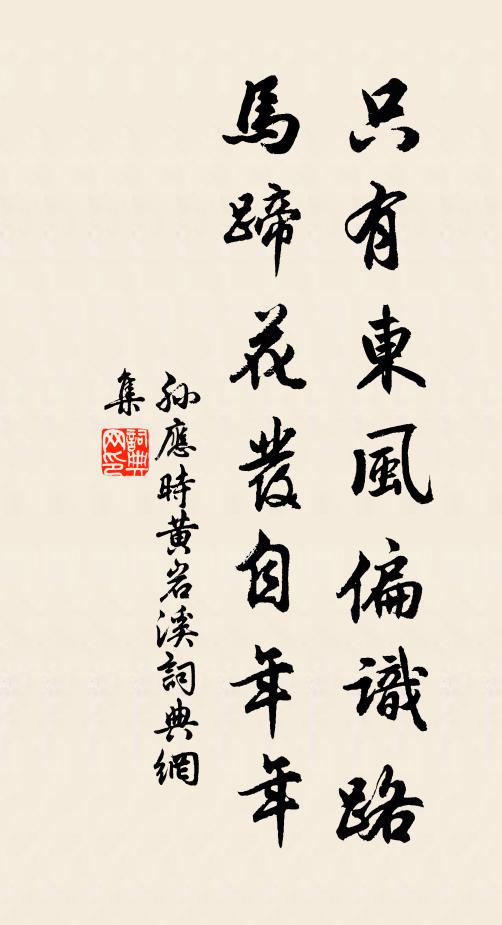 只有東風偏識路
馬蹄花發自年年
孫應時黃岩溪詞典網
集
詞典网印